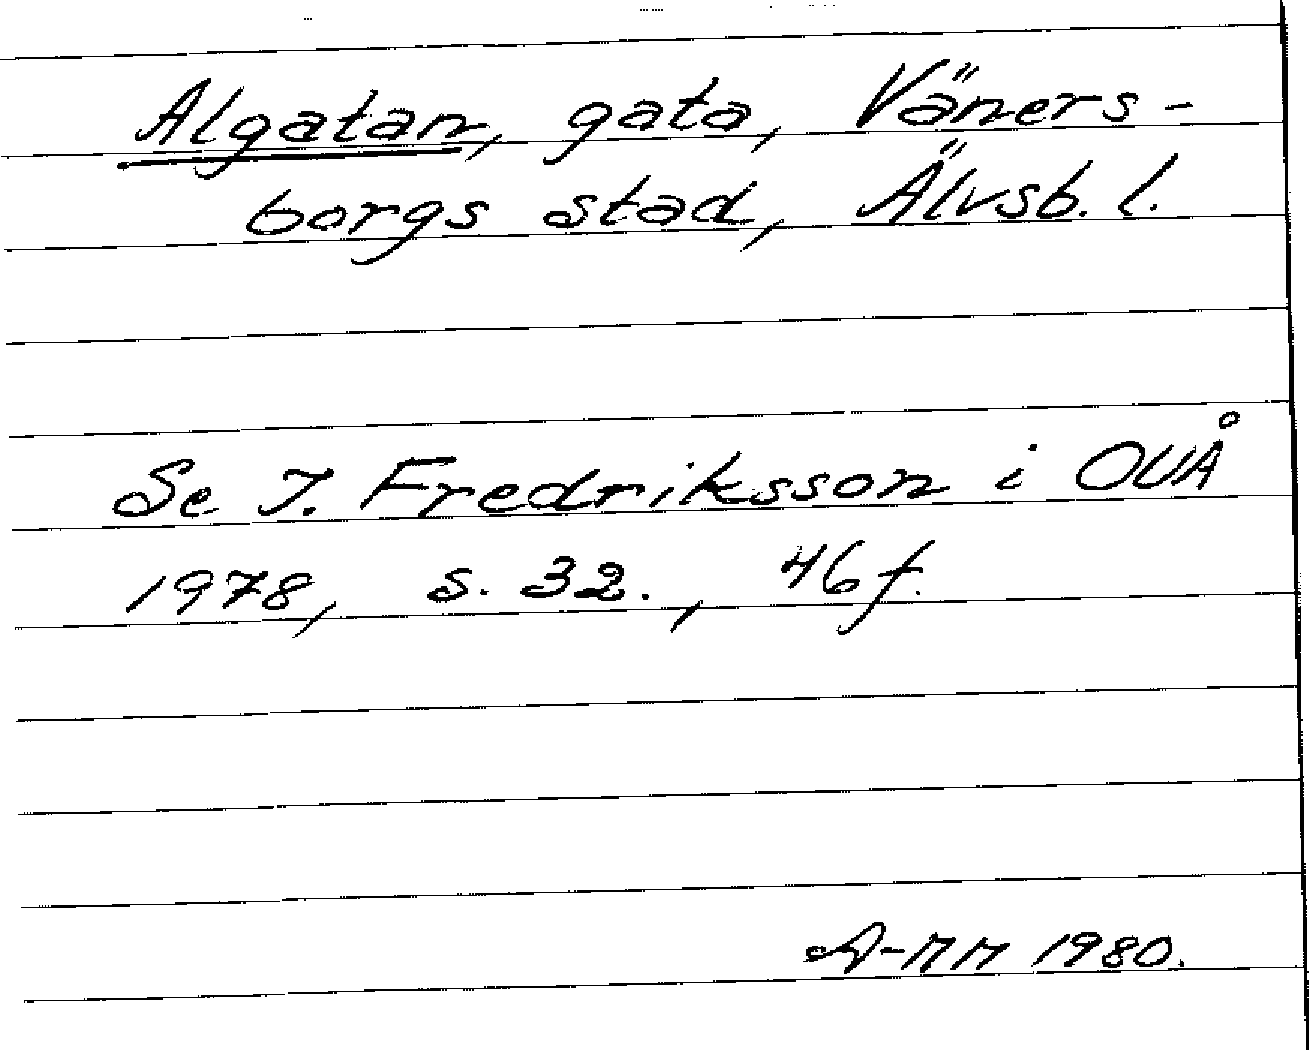 Algatan, gata, Väners-
borgs stad, Älvsb. l.
Se I. Fredriksson i OUÅ
1978, s. 32., 46 f.
A-MM 1980.